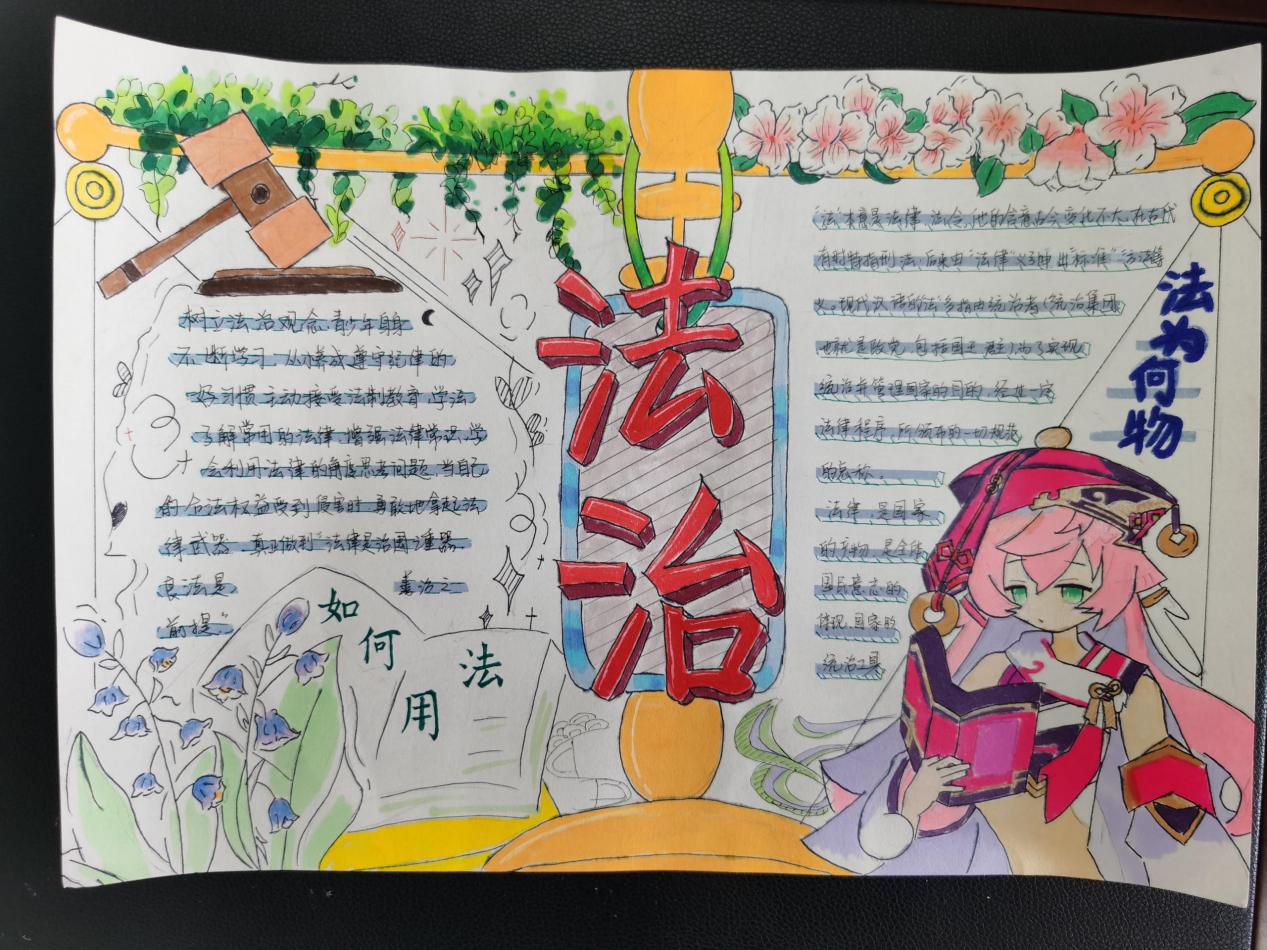 树立法治观念,青少年自身
不断学习,从小养成遵守纪律的
好习惯,主动接受法制教育,学法
了解常用的法律,增强法律常识,学
会利用法律的角度思考问题,当自己
的合法权益受到侵害时,勇敢地拿起法
律武器,真正做到“法律是治国重器
良法是 善治之
前提。”
如何用法
法治
法为何物
“法”本意是法律、法令,他的含意古今变化不大,在古代
有时特指刑法,后来由“法律”义引申出“标准”“方法等
义,现代汉语的法多指由统治者(统治集团
也就是政党,包括国王,君主)为了实现
统治并管理国家的目的,经过一定
法律程序,所颁布的一切规范
的总称。
法律,是国家
的产物,是全体
国民意志的
体现,国家的
统治工具